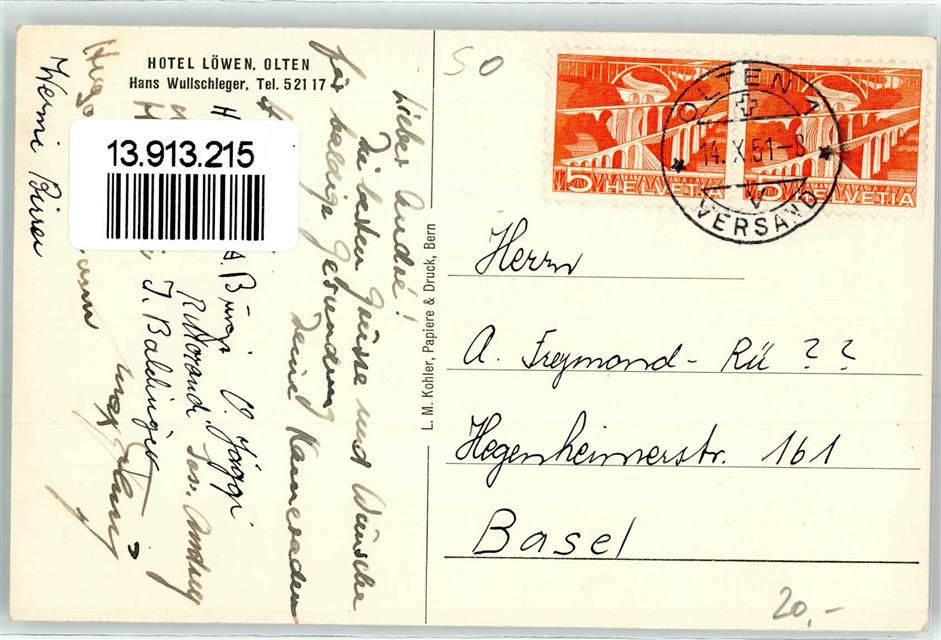 HOTEL LÖWEN, OLTEN
Hans Wullschleger, Tel. 521 17
13.913.215
Lieber André!
Die besten Grüsse und Wünsche
für baldige Gesundung
Deine Kameraden
A. Bürgi O. Jäggi
R. Morand
J. Baldinger
Max
Hugo
Werni Birrer
L. M. Kohler, Papiere & Druck, Bern
50
5 HELVETIA
5 HELVETIA
OLTEN 1
14.X.51-8
V
VERSAND
Herrn
A. Freymond - Rü ??
Hegenheimerstr. 161
Basel
20,-